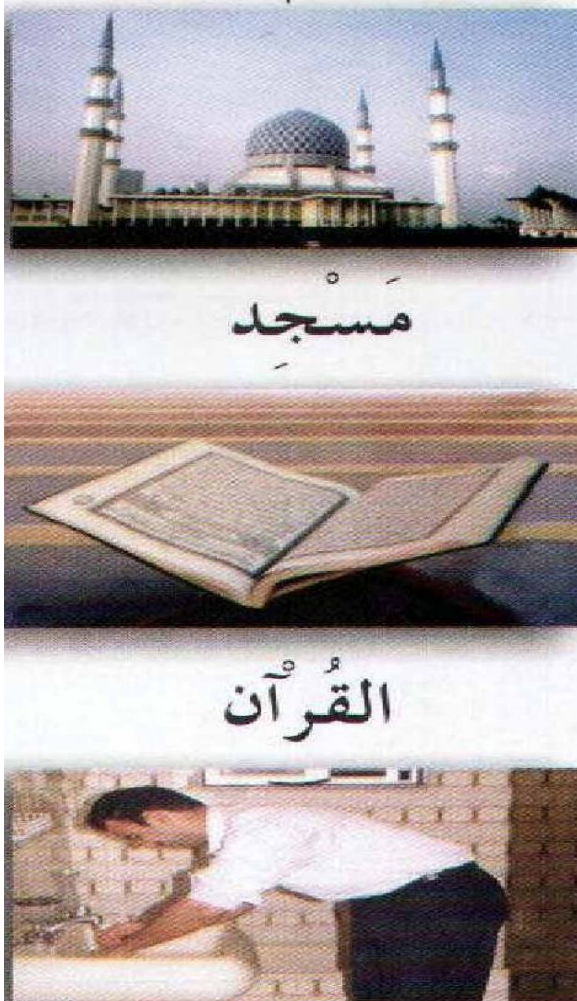 مَسْجِد
القُرْآن